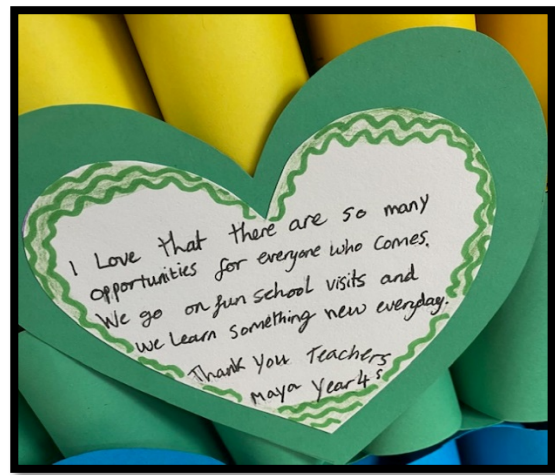 I Love that there are so many
opportunities for everyone who comes.
We go on fun school visits and
we Learn something new everyday.
Thank you Teachers
Maya Year 4s